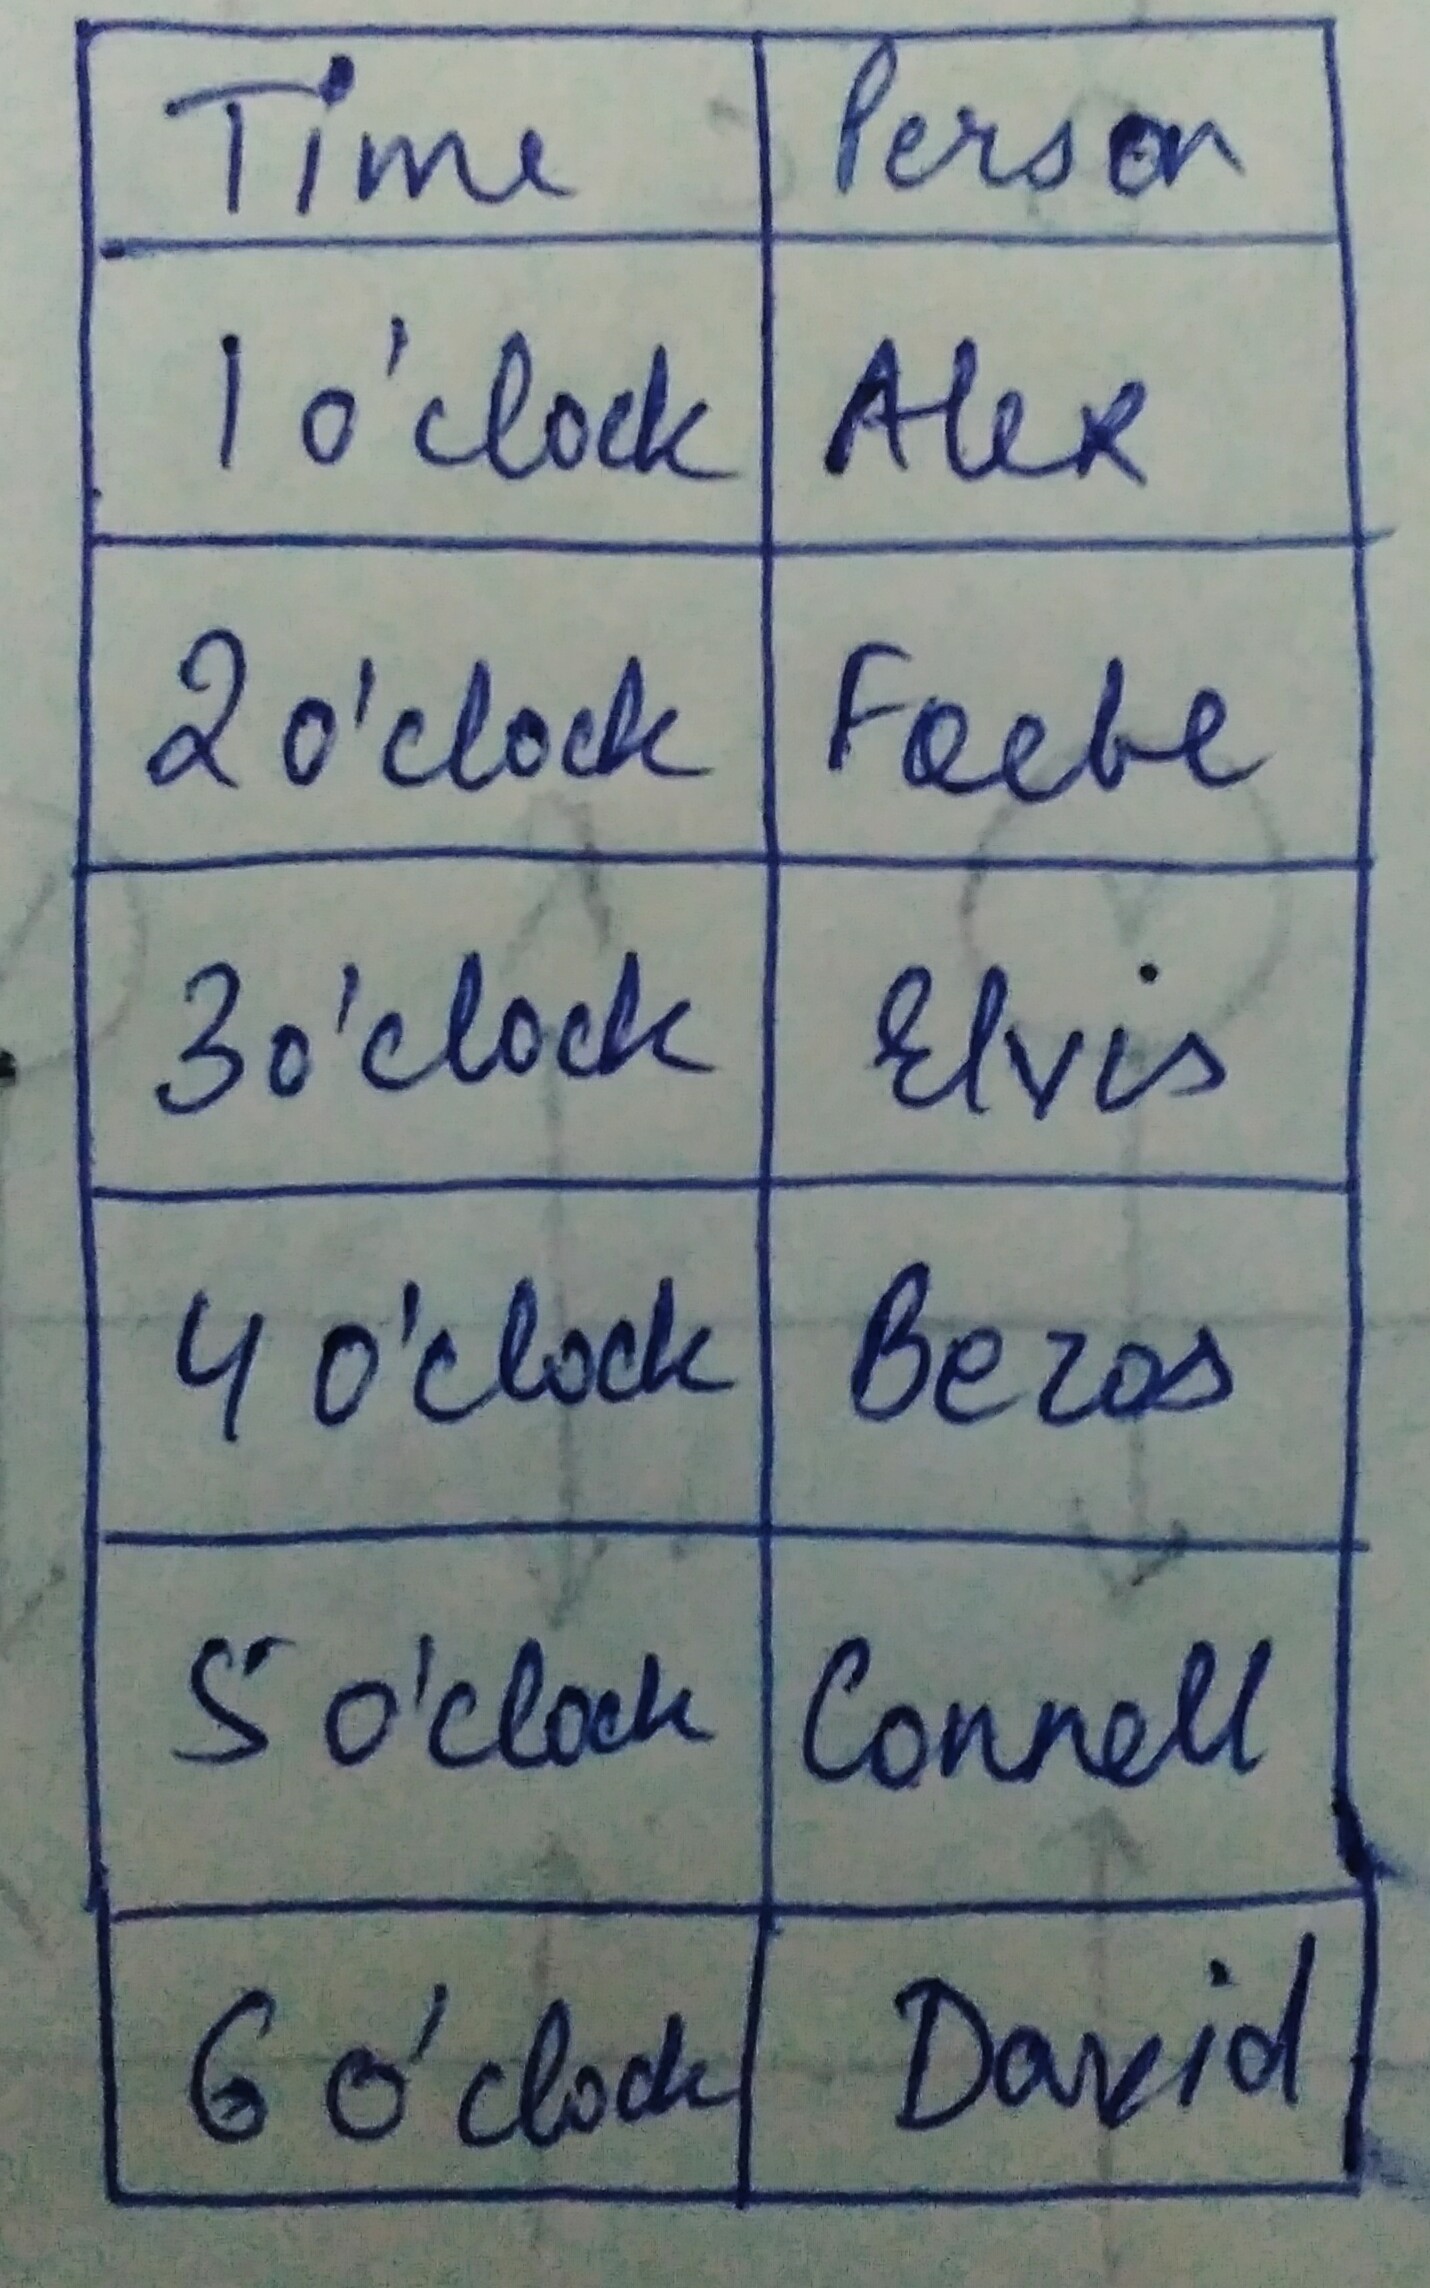 Time Person
1 o'clock Alex
2 o'clock Faebe
3 o'clock Elvis
4 o'clock Bezos
5 o'clock Connell
6 o'clock David